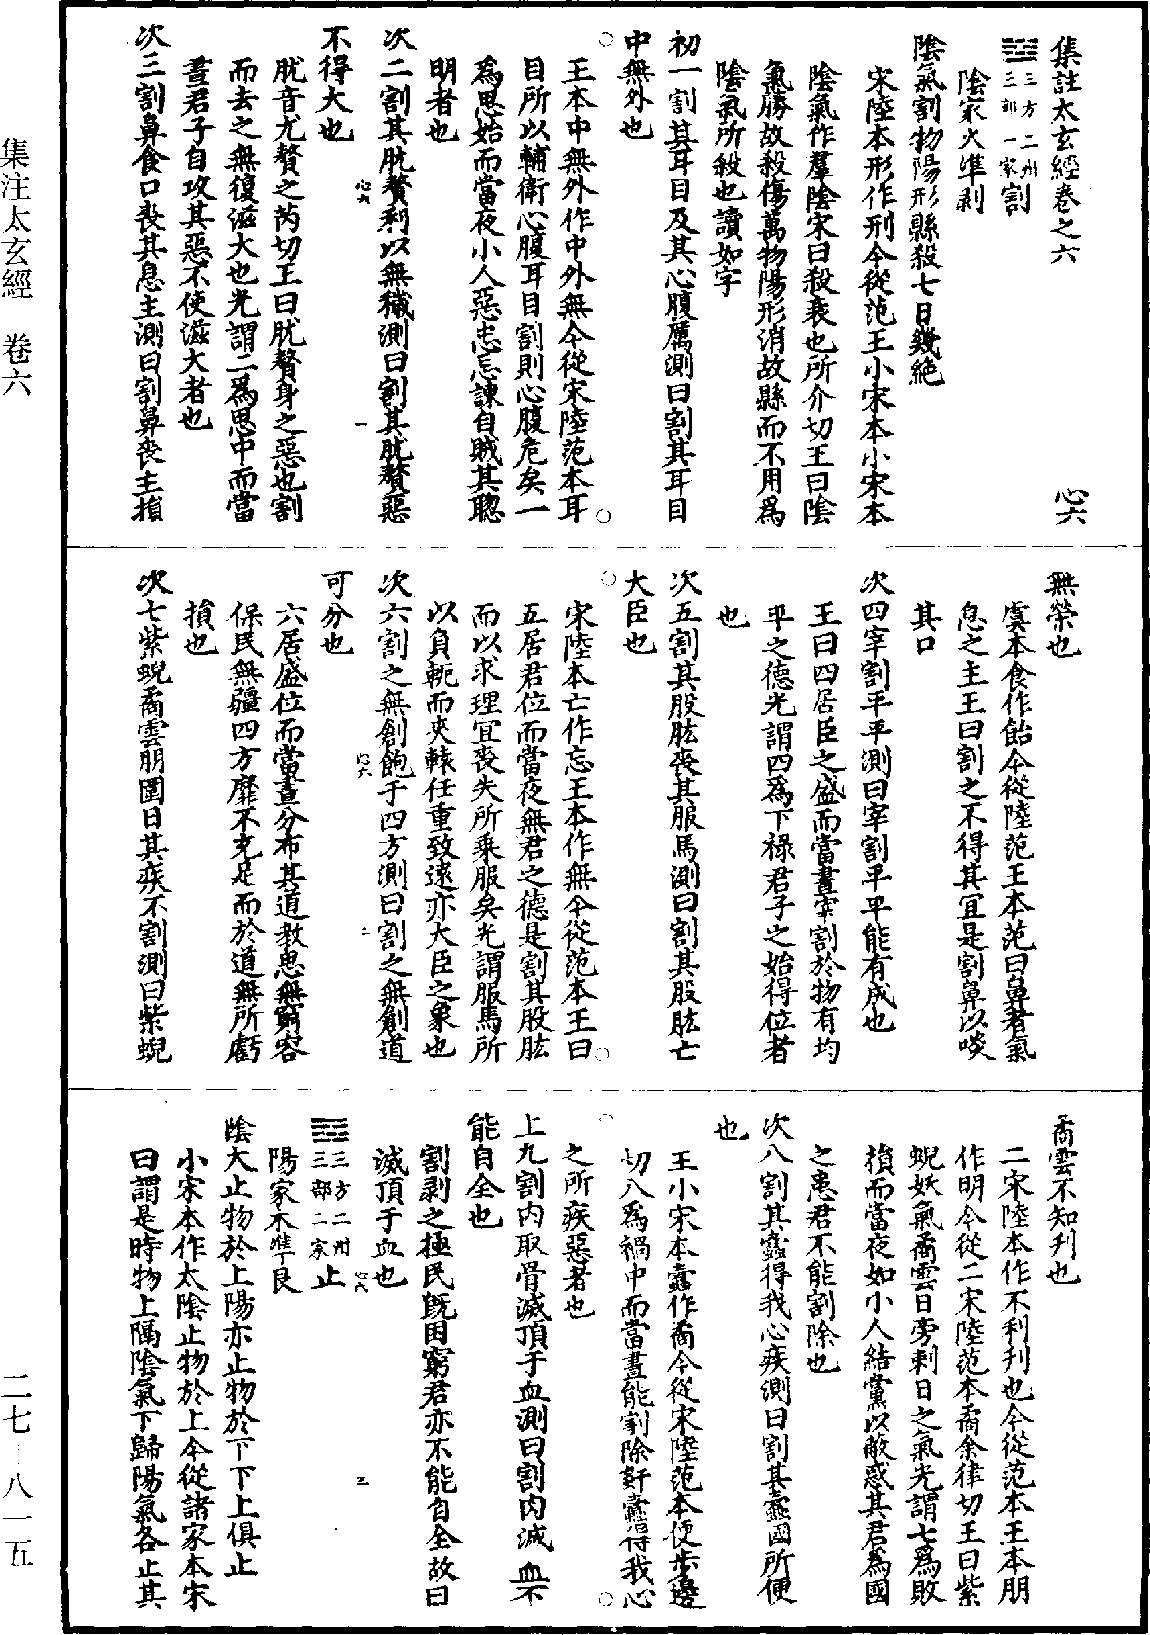 集註太玄經卷之六 心六
三方二州
三部一家
割
陰家火準剥
陰氣割物陽形縣殺七日幾絶
宋陸本形作刑今從范王小宋本小宋本
陰氣作羣陰宋曰殺衰也所介切王曰陰
氣勝故殺傷萬物陽形消故縣而不用爲
陰氣所殺也讀如字
初一割其耳目及其心腹厲測曰割其耳目
中無外也
王本中無外作中外無今從宋陸范本耳
目所以輔衛心腹耳目割則心腹危矣一
爲思始而當夜小人惡忠忘諫自賊其聦
明者也
次二割其肬贅利以無穢測曰割其肬贅惡
不得大也
心六 一
肬音尤贅之芮切王曰肬贅身之惡也割
而去之無復滋大也光謂二爲思中而當
晝君子自攻其惡不使滋大者也
次三割鼻食口喪其息主測曰割鼻喪主損
無榮也
虞本食作飴今從陸范王本范曰鼻者氣
息之主王曰割之不得其宜是割鼻以啖
其口
次四宰割平平測曰宰割平平能有成也
王曰四居臣之盛而當晝宰割於物有均
平之德光謂四爲下禄君子之始得位者
也
次五割其股肱喪其服馬測曰割其股肱亡
大臣也
宋陸本亡作忘王本作無今從范本王曰
五居君位而當夜無君之德是割其股肱
而以求理宜喪失所乘服矣光謂服馬所
以負軛而夾轅任重致遠亦大臣之象也
次六割之無創飽于四方測曰割之無創道
可分也
心六 二
六居盛位而當晝分布其道教思無窮容
保民無疆四方靡不充足而於道無所虧
損也
次七紫蜺矞雲朋圍日其疾不割測曰紫蜺
矞雲不知刋也
二宋陸本作不利刋也今從范本王本朋
作明今從二宋陸范本矞余律切王曰紫
蜺妖氣矞雲日旁刺日之氣光謂七爲敗
損而當夜如小人結黨以蔽惑其君為國
之患君不能割除也
次八割其蠹得我心疾測曰割其蠹國所便
也
王小宋本蠹作矞今從宋陸范本便步邊
切八爲禍中而當晝能割除姧蠹得我心
之所疾惡者也
上九割肉取骨滅頂于血測曰割肉滅血不
能自全也
割剥之極民既困窮君亦不能自全故曰
滅頂于血也
心六 三
三方二州
三部二家
止
陽家木準艮
陰大止物於上陽亦止物於下下上俱止
小宋本作太陰止物於上今從諸家本宋
曰謂是時物上隔陰氣下歸陽氣各止其
集注太玄經 卷六
二七—八一五